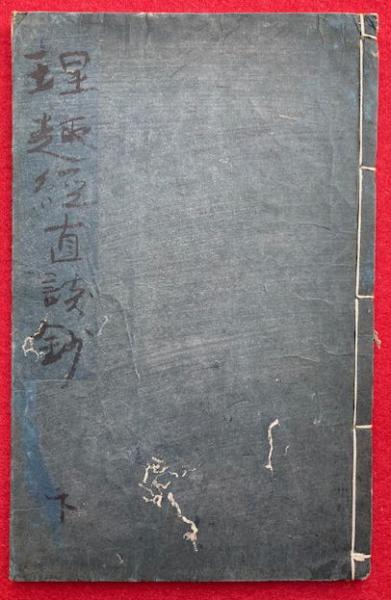 理趣経直談鈔
下